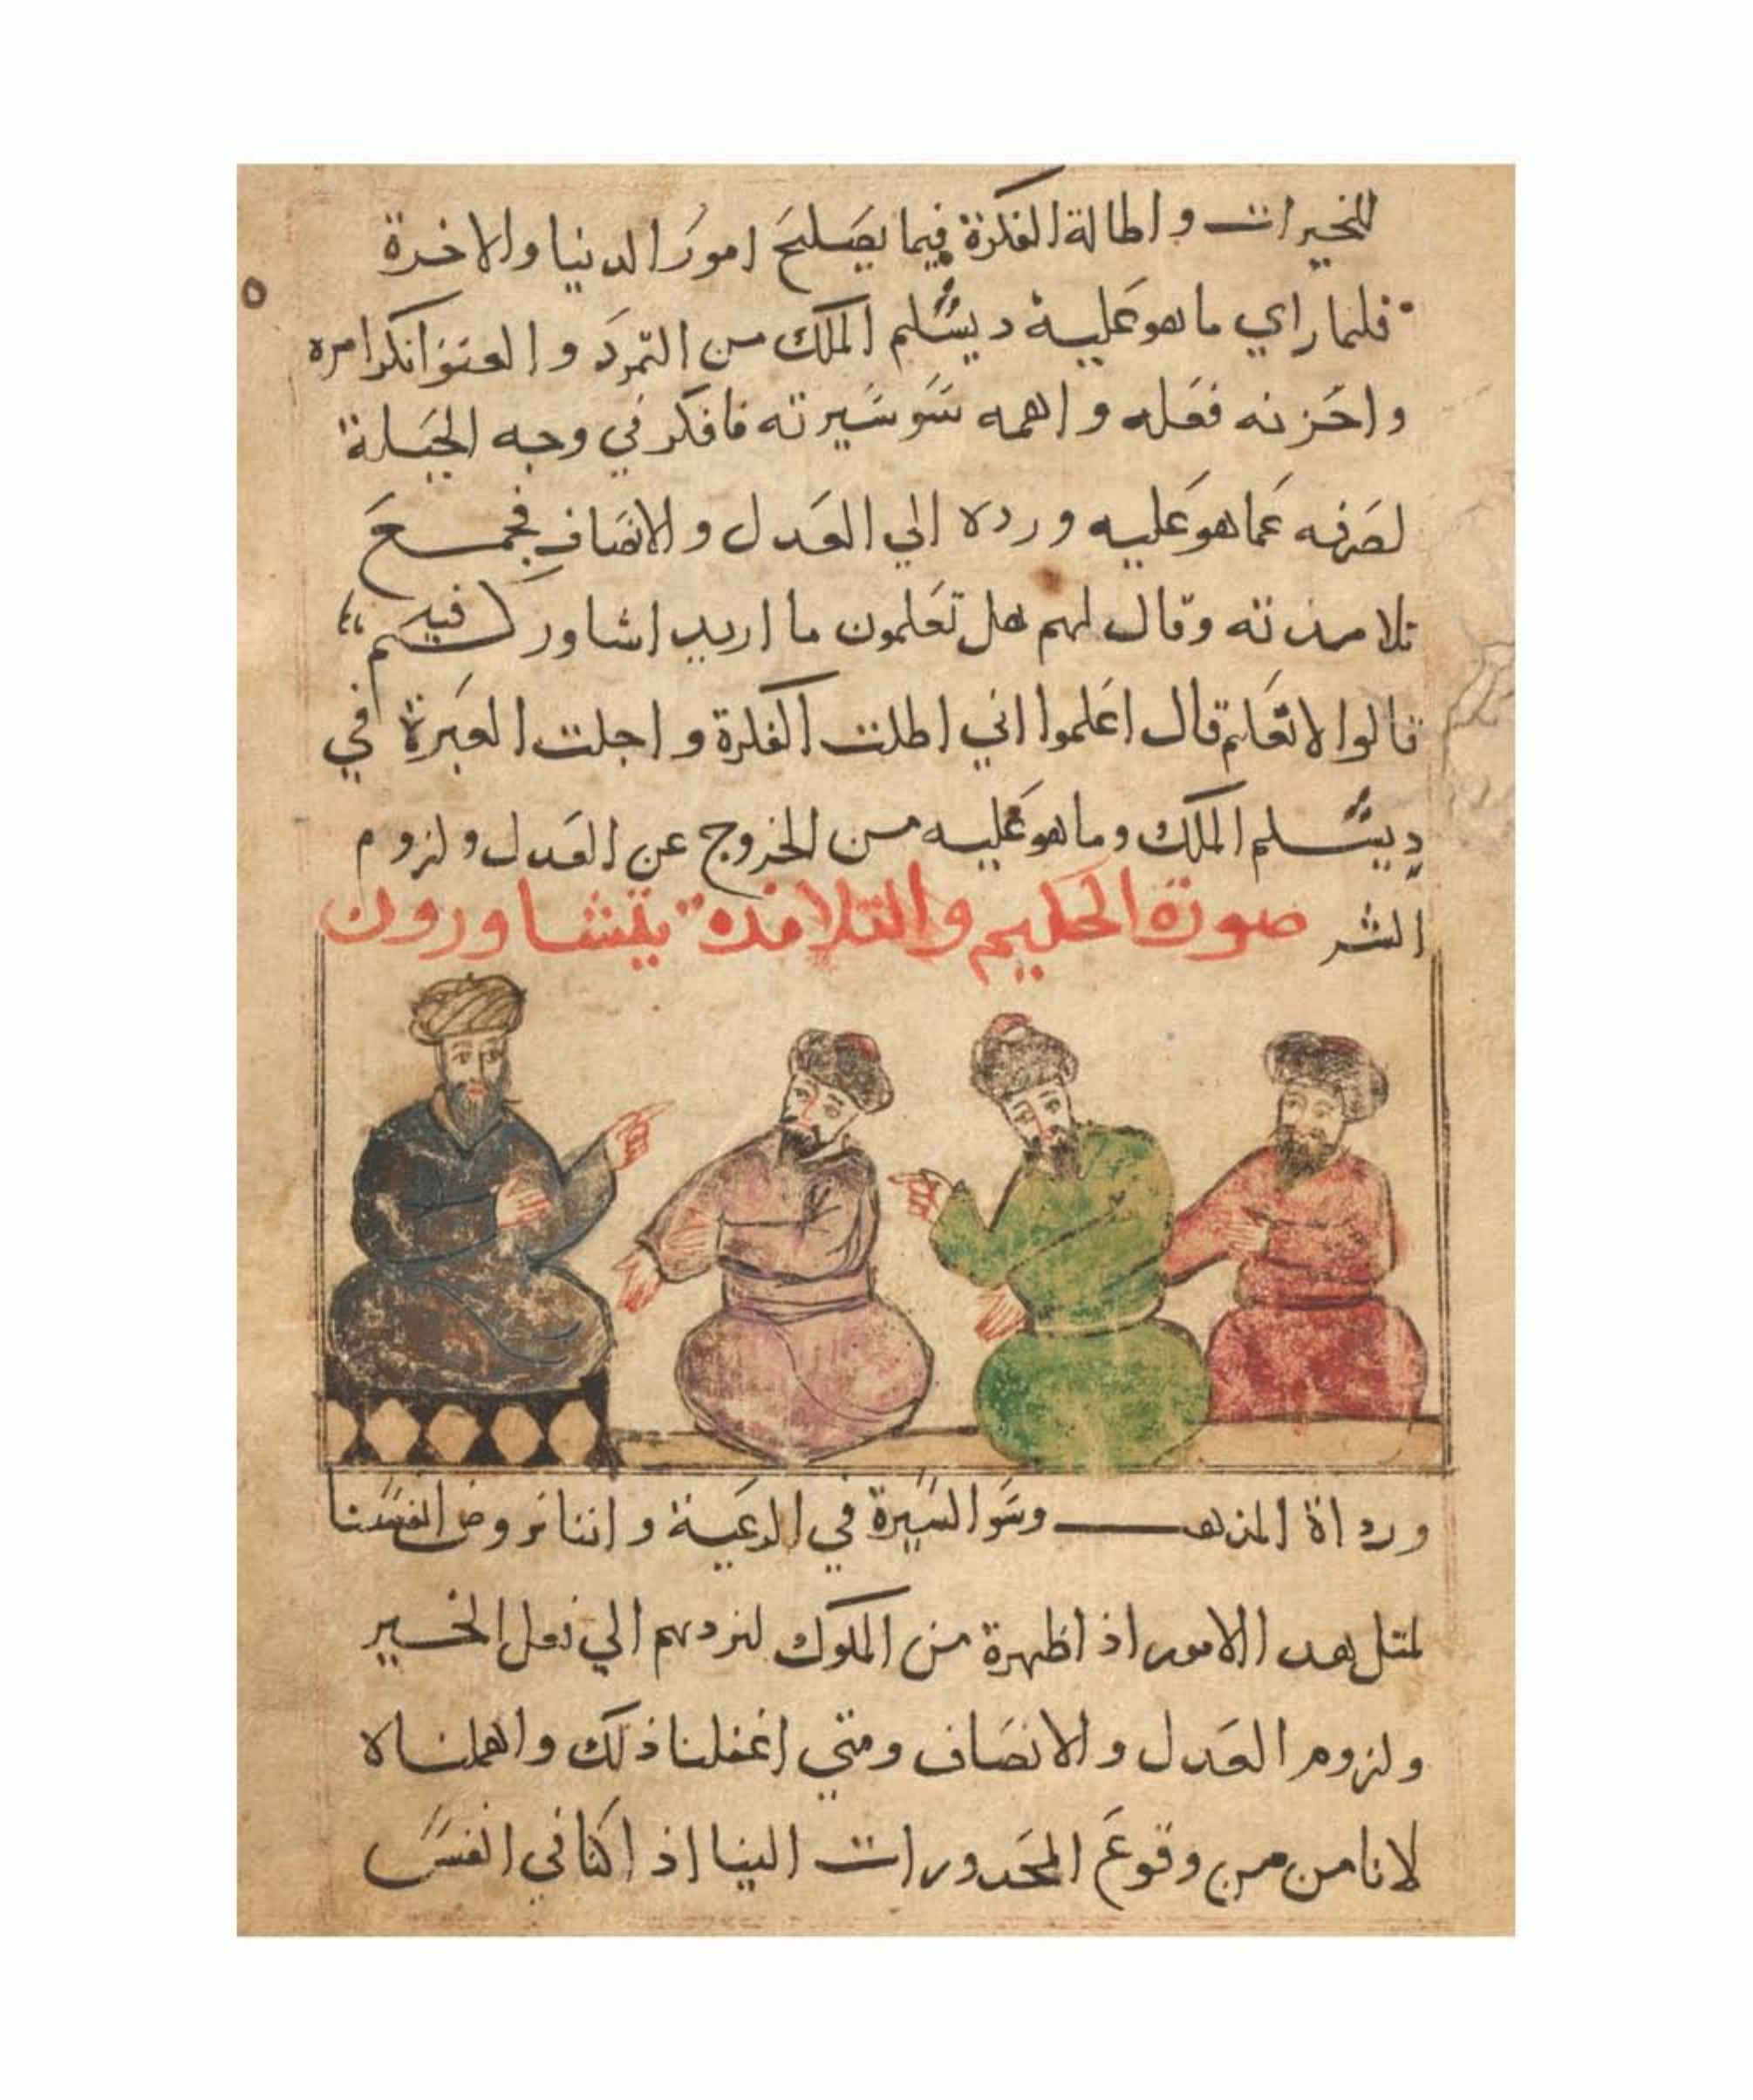 للخيرات واطالة الفكرة فيما يصَلحَ امورَ الدنيا والاخرة
فلما راي ما هو عَليه ديسَّلم الملك من التمردَ والعتو انكر امره
واحَزنه فعَله واهمه سَو سَيرته فافكر في وجه الحَيلة
لصَرفه عَما هو عَليه ورده الي العَدل والانصَاف فجمع
تلامذته وقال لهم هل تعَلمون ما اريد اشاوركم فيه
قالوا لا نعَلم قال اعَلموا اني اطلت الفكرة واجلت العَبرة في
ديسَّلم الملك وما هو عَليه من الخروج عن العَدل ولزوم
الشر صورة الحكيم والتلامذه يتشاورون
ورداة المذهب وسَو السَيرة في الرعَية واننا نروض انفسَنا
لمثل هده الامور اذا ظهرة من الملوك لنردهم الي فعل الخير
ولزوم العَدل والانصَاف ومتي اغفلنا ذلك واهملناه
لا نامن من وقوعَ المحَدورات الينا اذا كنا في انفسَ